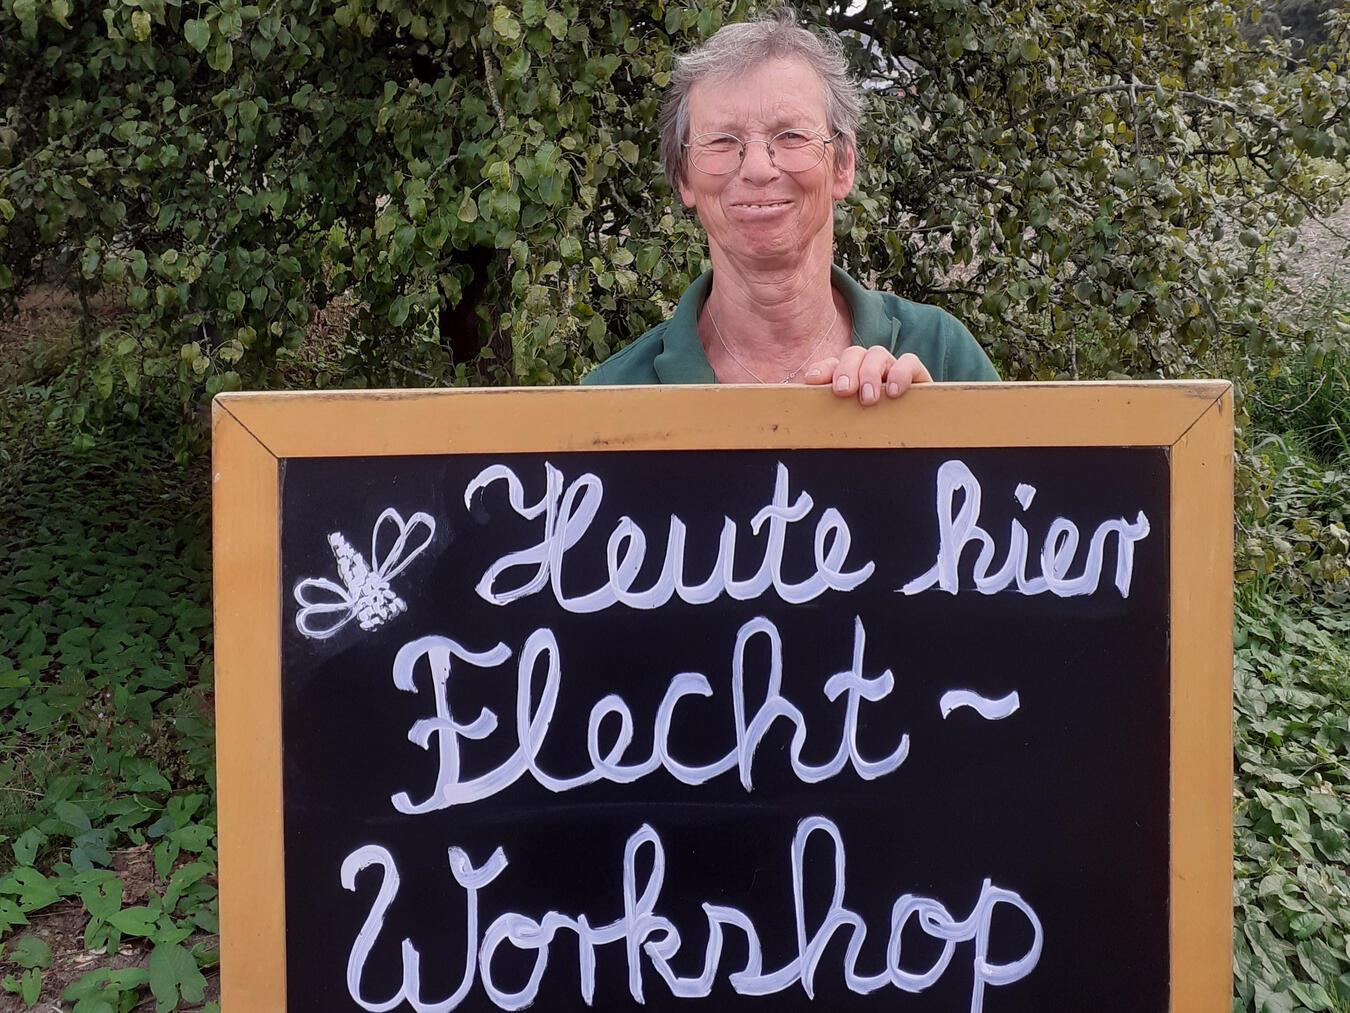 Heute hier
Flecht~
Workshop